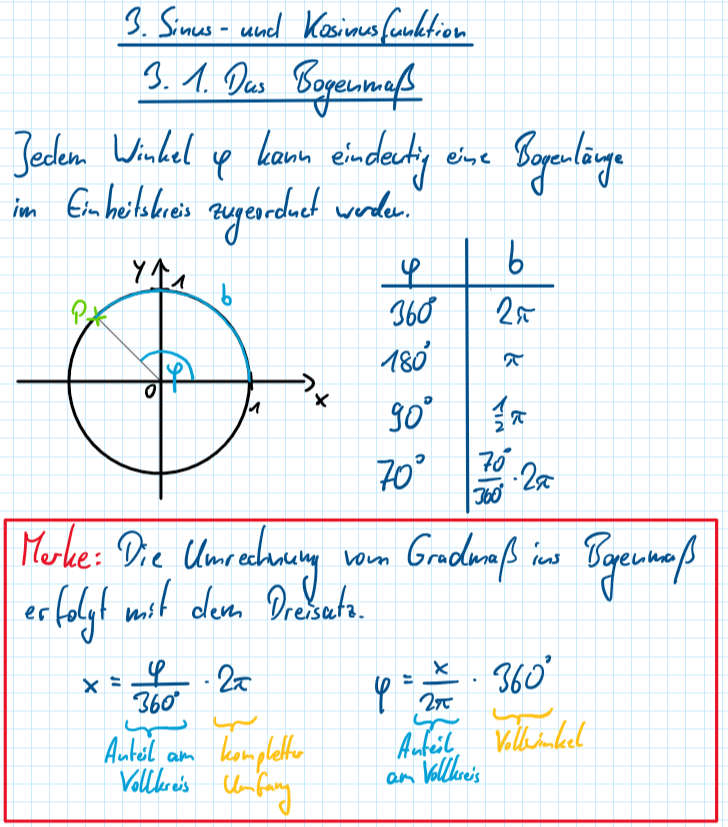 3. Sinus- und Kosinusfunktion
3.1. Das Bogenmaß
Jedem Winkel φ kann eindeutig eine Bogenlänge
im Einheitskreis zugeordnet werden.
y
1
b
P
φ
0
1
x
φ b
360° 2π
180° π
90° 1/2 π
70° 70°/360° · 2π
Merke: Die Umrechnung vom Gradmaß ins Bogenmaß
erfolgt mit dem Dreisatz.
x = φ/360° · 2π φ = x/2π · 360°
Anteil am kompletter Anteil Vollwinkel
Vollkreis Umfang am Vollkreis